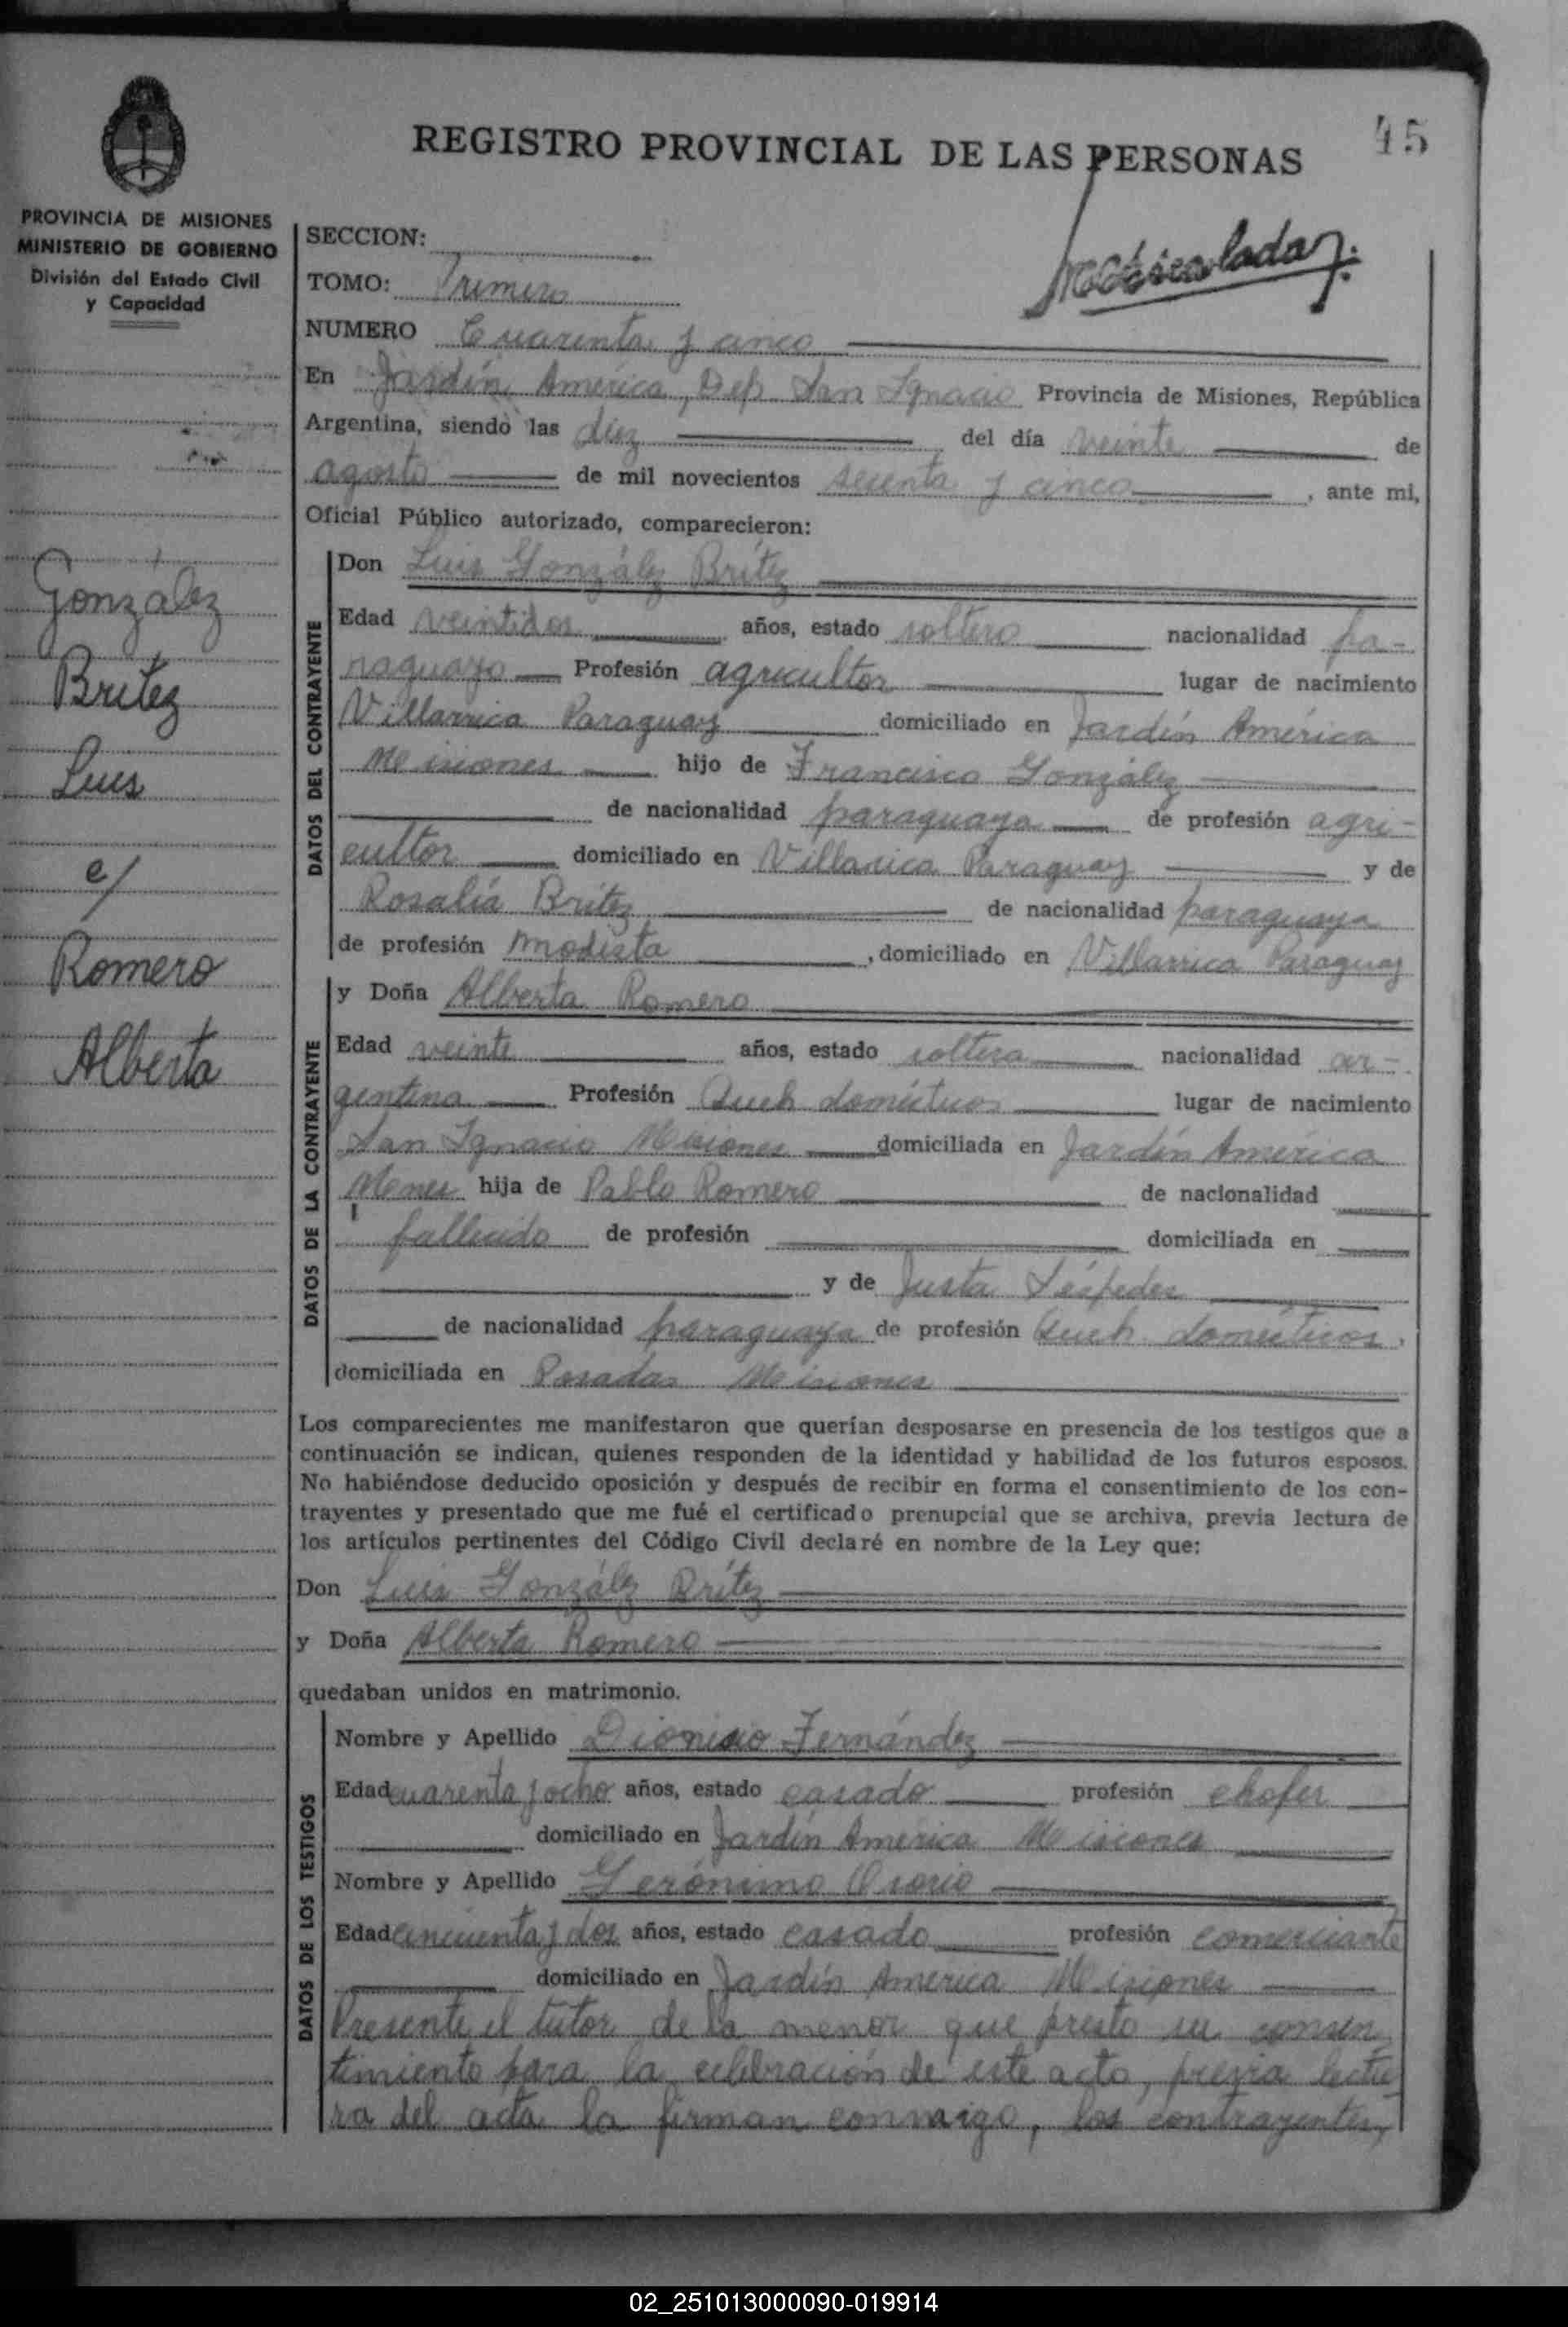 REGISTRO PROVINCIAL DE LAS PERSONAS
45
PROVINCIA DE MISIONES
MINISTERIO DE GOBIERNO
División del Estado Civil
y Capacidad
González
Britez
Luis
c/
Romero
Alberta
SECCION:
TOMO: Primero
NUMERO Cuarenta y cinco
En Jardín América, Dep. San Ignacio Provincia de Misiones, República
Argentina, siendo las diez del día veinte de
agosto de mil novecientos sesenta y cinco, ante mi,
Oficial Público autorizado, comparecieron:
DATOS DEL CONTRAYENTE
Don Luis González Brítez
Edad veintidos años, estado soltero nacionalidad pa-
raguayo Profesión agricultor lugar de nacimiento
Villarrica Paraguay domiciliado en Jardín América
Misiones hijo de Francisco González
de nacionalidad paraguaya de profesión agri-
cultor domiciliado en Villarica Paraguay y de
Rosalía Brítez de nacionalidad paraguaya
de profesión modista, domiciliado en Villarrica Paraguay
DATOS DE LA CONTRAYENTE
y Doña Alberta Romero
Edad veinte años, estado soltera nacionalidad ar-
gentina Profesión Queh. domésticos lugar de nacimiento
San Ignacio Misiones domiciliada en Jardín América
Mones hija de Pablo Romero de nacionalidad
fallecido de profesión domiciliada en
y de Justa Séspedes
de nacionalidad paraguaya de profesión Queh. domésticos,
domiciliada en Posadas Misiones
Los comparecientes me manifestaron que querían desposarse en presencia de los testigos que a
continuación se indican, quienes responden de la identidad y habilidad de los futuros esposos.
No habiéndose deducido oposición y después de recibir en forma el consentimiento de los con-
trayentes y presentado que me fué el certificado prenupcial que se archiva, previa lectura de
los artículos pertinentes del Código Civil declaré en nombre de la Ley que:
Don Luis González Brítez
y Doña Alberta Romero
quedaban unidos en matrimonio.
DATOS DE LOS TESTIGOS
Nombre y Apellido Dionisio Fernández
Edad cuarenta y ocho años, estado casado profesión chofer
domiciliado en Jardín América Misiones
Nombre y Apellido Gerónimo Osorio
Edad cincuenta y dos años, estado casado profesión comerciante
domiciliado en Jardín America Misiones
Presente el tutor de la menor que presto su consen
timiento para la celebración de este acto, previa lectu
ra del acta la firman conmigo, los contrayentes,
02_251013000090-019914